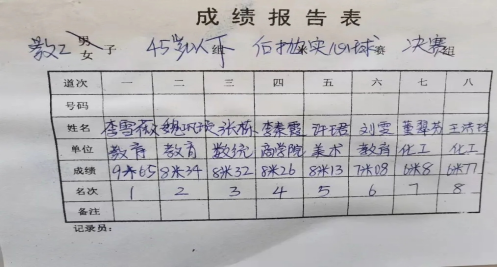 成绩报告表
教工 男 女 子 45岁以下 组 后抛实心球 赛 决赛 组
道次 一 二 三 四 五 六 七 八
号码
姓名 李雪薇 张 李素霞 许珺 刘雯 董翠芳 王洪玲
单位 教育 教育 数统 商学院 美术 教育 化工 化工
成绩 9米65 8米34 8米32 8米26 8米13 7米08 6米8 6米77
名次 1 2 3 4 5 6 7 8
备注
记录员：